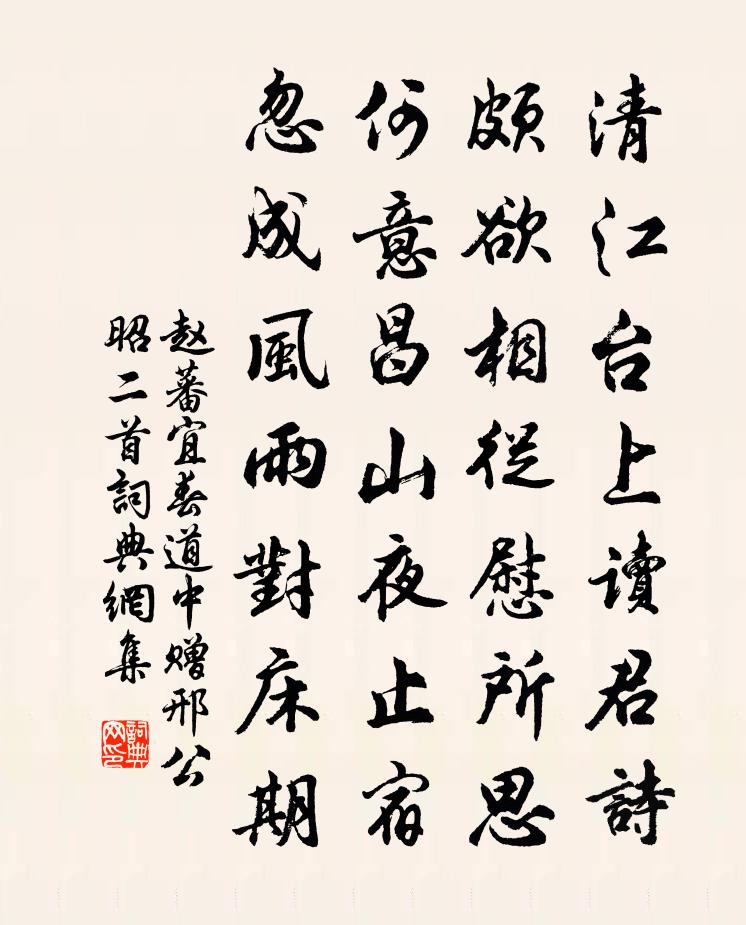 清江台上讀君詩
頗欲相從慰所思
何意昌山夜止宿
忽成風雨對床期
赵蕃宜春道中赠邢公
昭二首詞典網集
詞典
网印